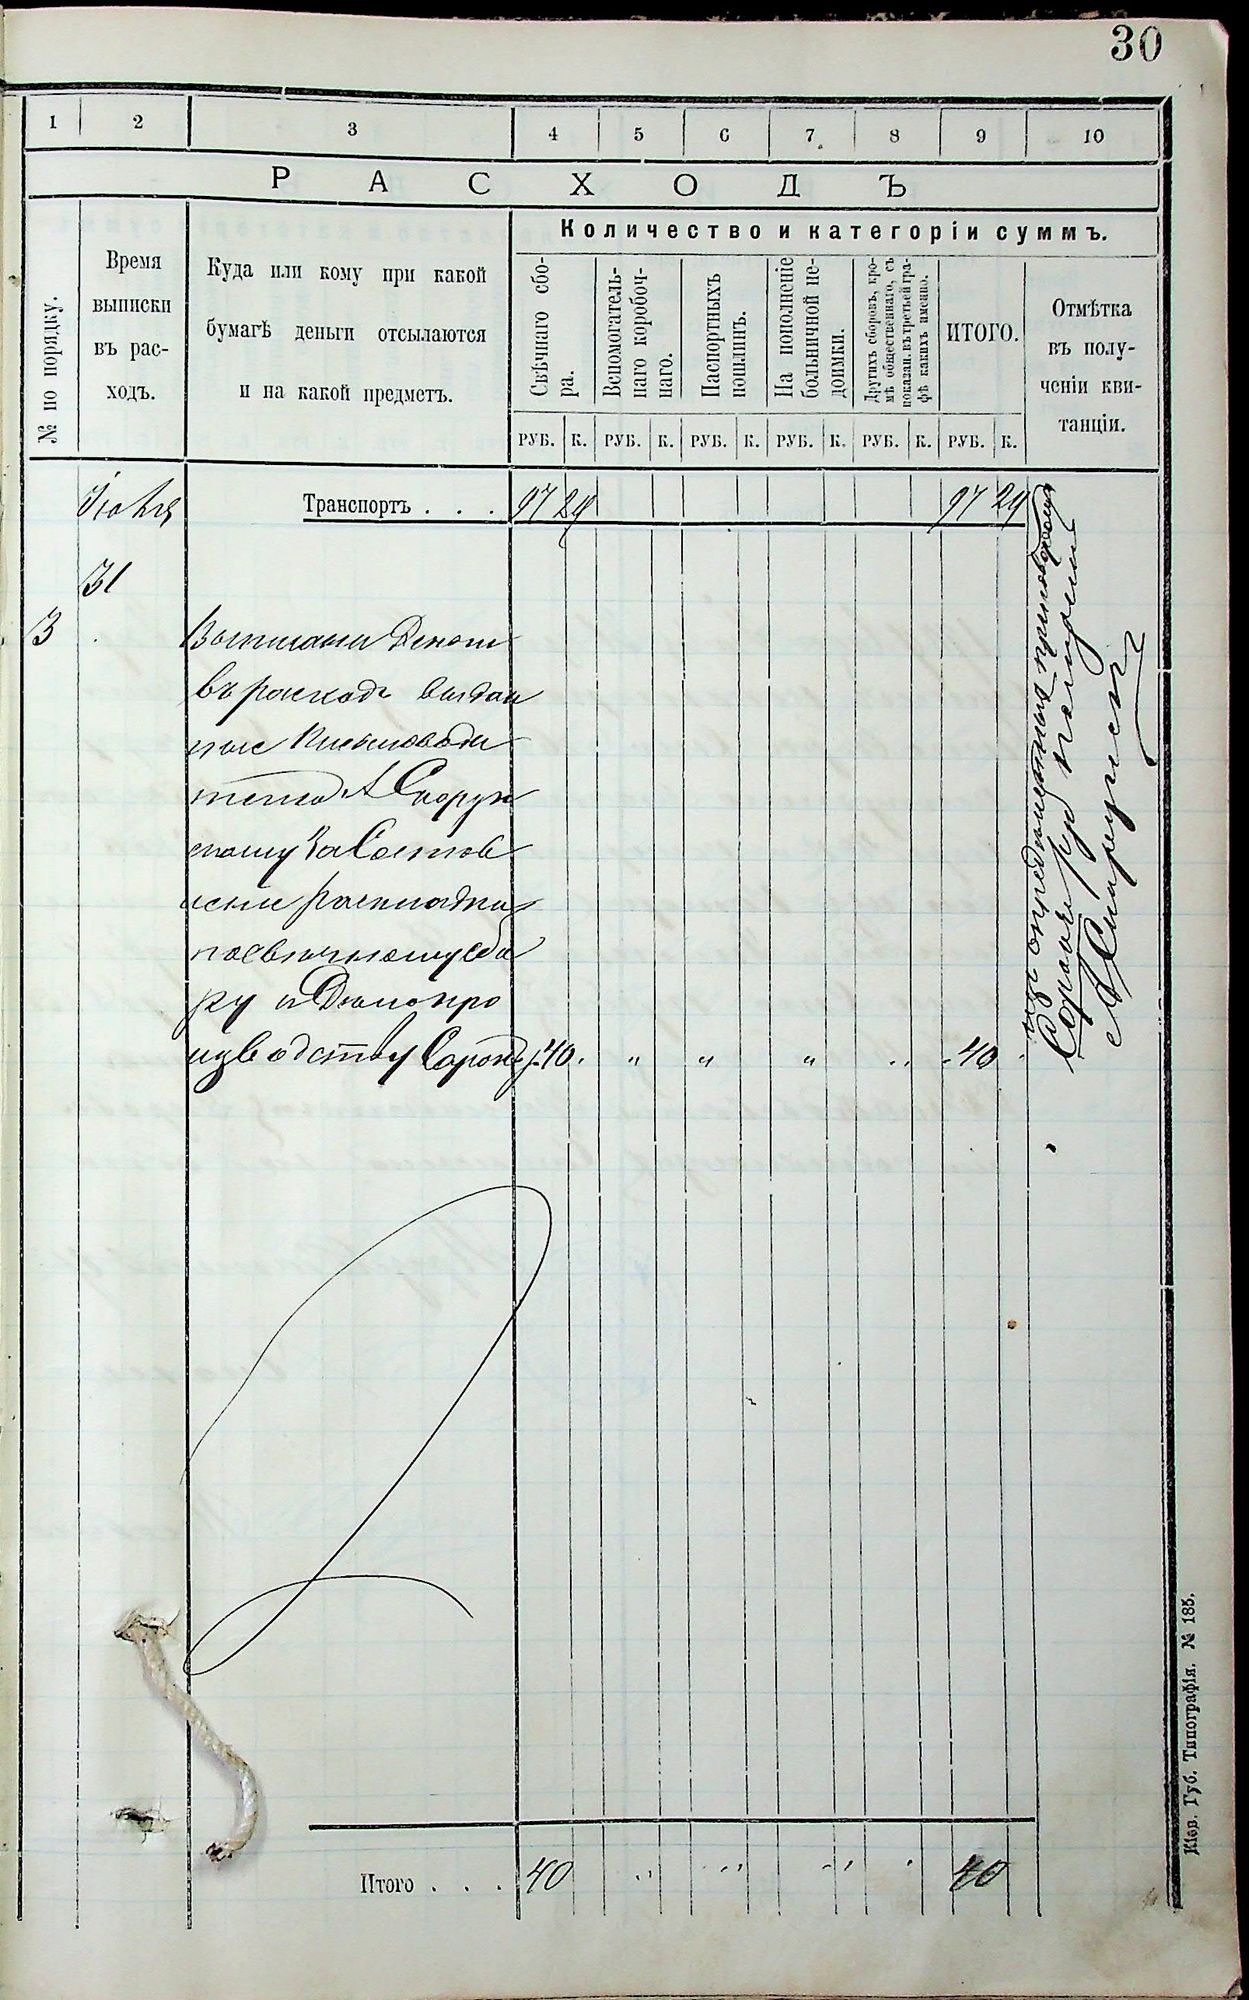 30
1 2 3 4 5 6 7 8 9 10
РАСХОДЪ
№ по порядку.
Время
выписки
въ рас-
ходъ.
Куда или кому при какой
бумагѣ деньги отсылаются
и на какой предметъ.
Количество и категоріи суммъ.
Свѣчнаго сбо-
ра.
Вспомогатель-
наго коробоч-
наго.
Паспортныхъ
пошлинъ.
На пополненіе
больничной не-
доимки.
Другихъ сборовъ, кро-
мѣ общественнаго, съ
показан. въ третьей гра-
фѣ какихъ именно.
ИТОГО.
Отмѣтка
въ полу-
ченіи кви-
танціи.
РУБ. К. РУБ. К. РУБ. К. РУБ. К. РУБ. К. РУБ. К.
Транспортъ . . . 97 29 97 29
31
3 Выписаны
въ расходъ выдан
ные Письмоводи
телю А
за Состав
леніе раскладки
по свѣчному сбо
ру и Дѣлопро
изводству Сорокъ р. 40. " " " .. 40
Сорокъ руб получилъ
Итого . . . 40 " " " " 40
Кіев. Губ. Типографія. № 185.